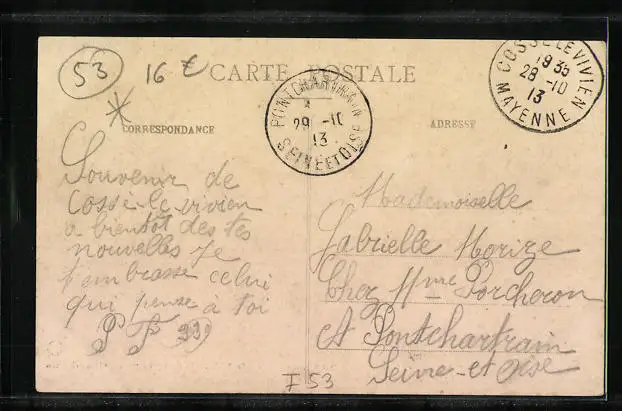 53
16 €
CARTE POSTALE
CORRESPONDANCE
ADRESSE
PONTCHARTRAIN
29 -10
13
SEINE ET OISE
COSSE LE VIVIEN
19 35
28 -10
13
MAYENNE
Souvenir de
Cossé-le-vivien
a bientot des tes
nouvelles Je
t'embrasse celui
qui pense à toi
Mademoiselle
Gabrielle Morize
Chez Mme Porcheron
A Pontchartrain
Seine-et Oise
I 53